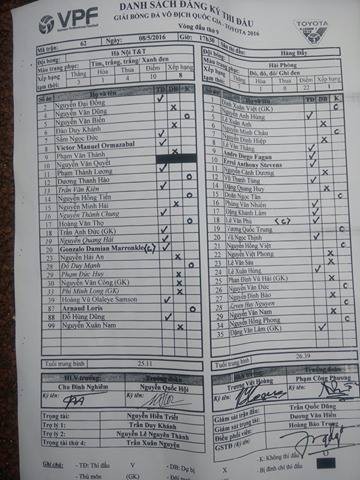 VPF
DANH SÁCH ĐĂNG KÝ THI ĐẤU
GIẢI BÓNG ĐÁ VÔ ĐỊCH QUỐC GIA - TOYOTA 2016
Vòng đấu thứ 9
TOYOTA
Mã trận: 62 Ngày: 08/5/2016 Giờ: 17h30
Đội bóng: Hà Nội T&T
Màu trang phục: Tím, trắng, trắng/ Xanh đen
Xếp hạng Thắng Hòa Thua Điểm Xếp hạng
3 1 4 10 8
Số áo Họ và tên TĐ DB K
Nguyễn Đại Đồng
Nguyễn Văn Dũng
Nguyễn Văn Biển
Đào Duy Khánh
Sầm Ngọc Đức
8 Victor Manuel Ormazabal
9 Phạm Văn Thành
10 Nguyễn Văn Quyết
11 Phạm Thành Lương
12 Dương Thanh Hào
13 Trần Văn Kiên
14 Nguyễn Hồng Tiến
15 Nguyễn Minh Hải
16 Nguyễn Thành Chung
17 Hoàng Văn Thọ
18 Trần Anh Đức (GK)
19 Nguyễn Quang Hải
20 Gonzalo Damian Marronkle (C)
23 Nguyễn Hải An
28 Đỗ Duy Mạnh
29 Phạm Đức Huy
30 Nguyễn Văn Công (GK)
31 Phí Minh Long (GK)
39 Hoàng Vũ Olaleye Samson
87 Arnaud Loris
88 Đỗ Hùng Dũng
99 Nguyễn Xuân Nam
Tuổi trung bình 25.11
HLV trưởng Trưởng đoàn
Chu Đình Nghiêm Nguyễn Quốc Hội
Ký tên: Ký tên:
Trọng tài: Nguyễn Hiền Triết
Trợ lý 1: Trần Duy Khánh
Trợ lý 2: Nguyễn Lê Nguyên Thành
Trọng tài thứ 4: Trần Xuân Nguyện
Ghi chú: - TĐ: Thi đấu V - DB: Dự bị X
- Thủ môn (GK)
Hàng Đẫy
Hải Phòng
Đỏ, đỏ, đỏ/ Ghi đen
Thắng Hòa Thua Điểm Xếp hạng
1 22 1
Họ và tên TĐ DB K
Đinh Xuân Việt (GK)
Nguyễn Anh Hùng
Lê Xuân Anh
Nguyễn Minh Châu
Nguyễn Đình Hiệp
Lê Văn Thắng
Andre Diego Fagan
Errol Anthony Stevens
Cảnh Dương
Võ Thanh Tùng
Đặng Quang Huy
Đoàn Ngọc Tân
Phùng Văn Nhiên
Đặng Khánh Lâm
18 Lê Văn Phú (C)
Vương Quốc Trung
Vũ Ngọc Thịnh
Nguyễn Hồng Việt
Nguyễn Việt Phong
23 Lê Văn Sửu
24 Lê Xuân Hùng
25 Phan Đình Vũ Hải (GK)
26 Nguyễn Văn Đức
27 Nguyễn Đình Bảo
28
29 Nguyễn Văn Nam
34 Nguyễn Hồng Phong
35 Đặng Văn Lắm (GK)
Tuổi trung bình 26.39
HLV trưởng Trưởng đoàn
Trương Việt Hoàng Phạm Công Phương
Ký tên: Ký tên:
Giám sát trận đấu: Trần Quốc Dũng
Giám sát trọng tài: Dương Văn Hiền
Điều phối viên: Hoàng Bảo Trung
GSTĐ (ký tên):
- K: Không thi đấu
- Bị đình chỉ thi đấu